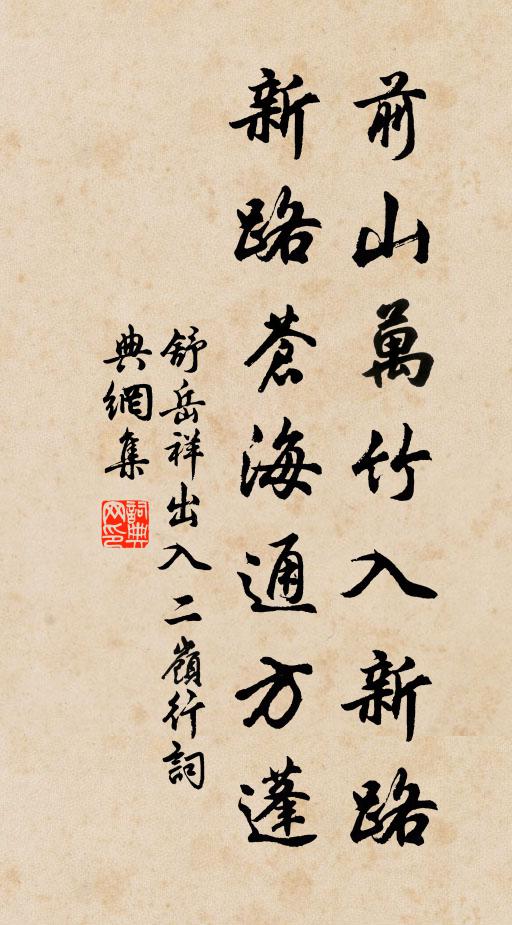 前山萬竹入新路
新路蒼海通方蓬
舒岳祥出入二嶺行詞
典網集
詞典
网印